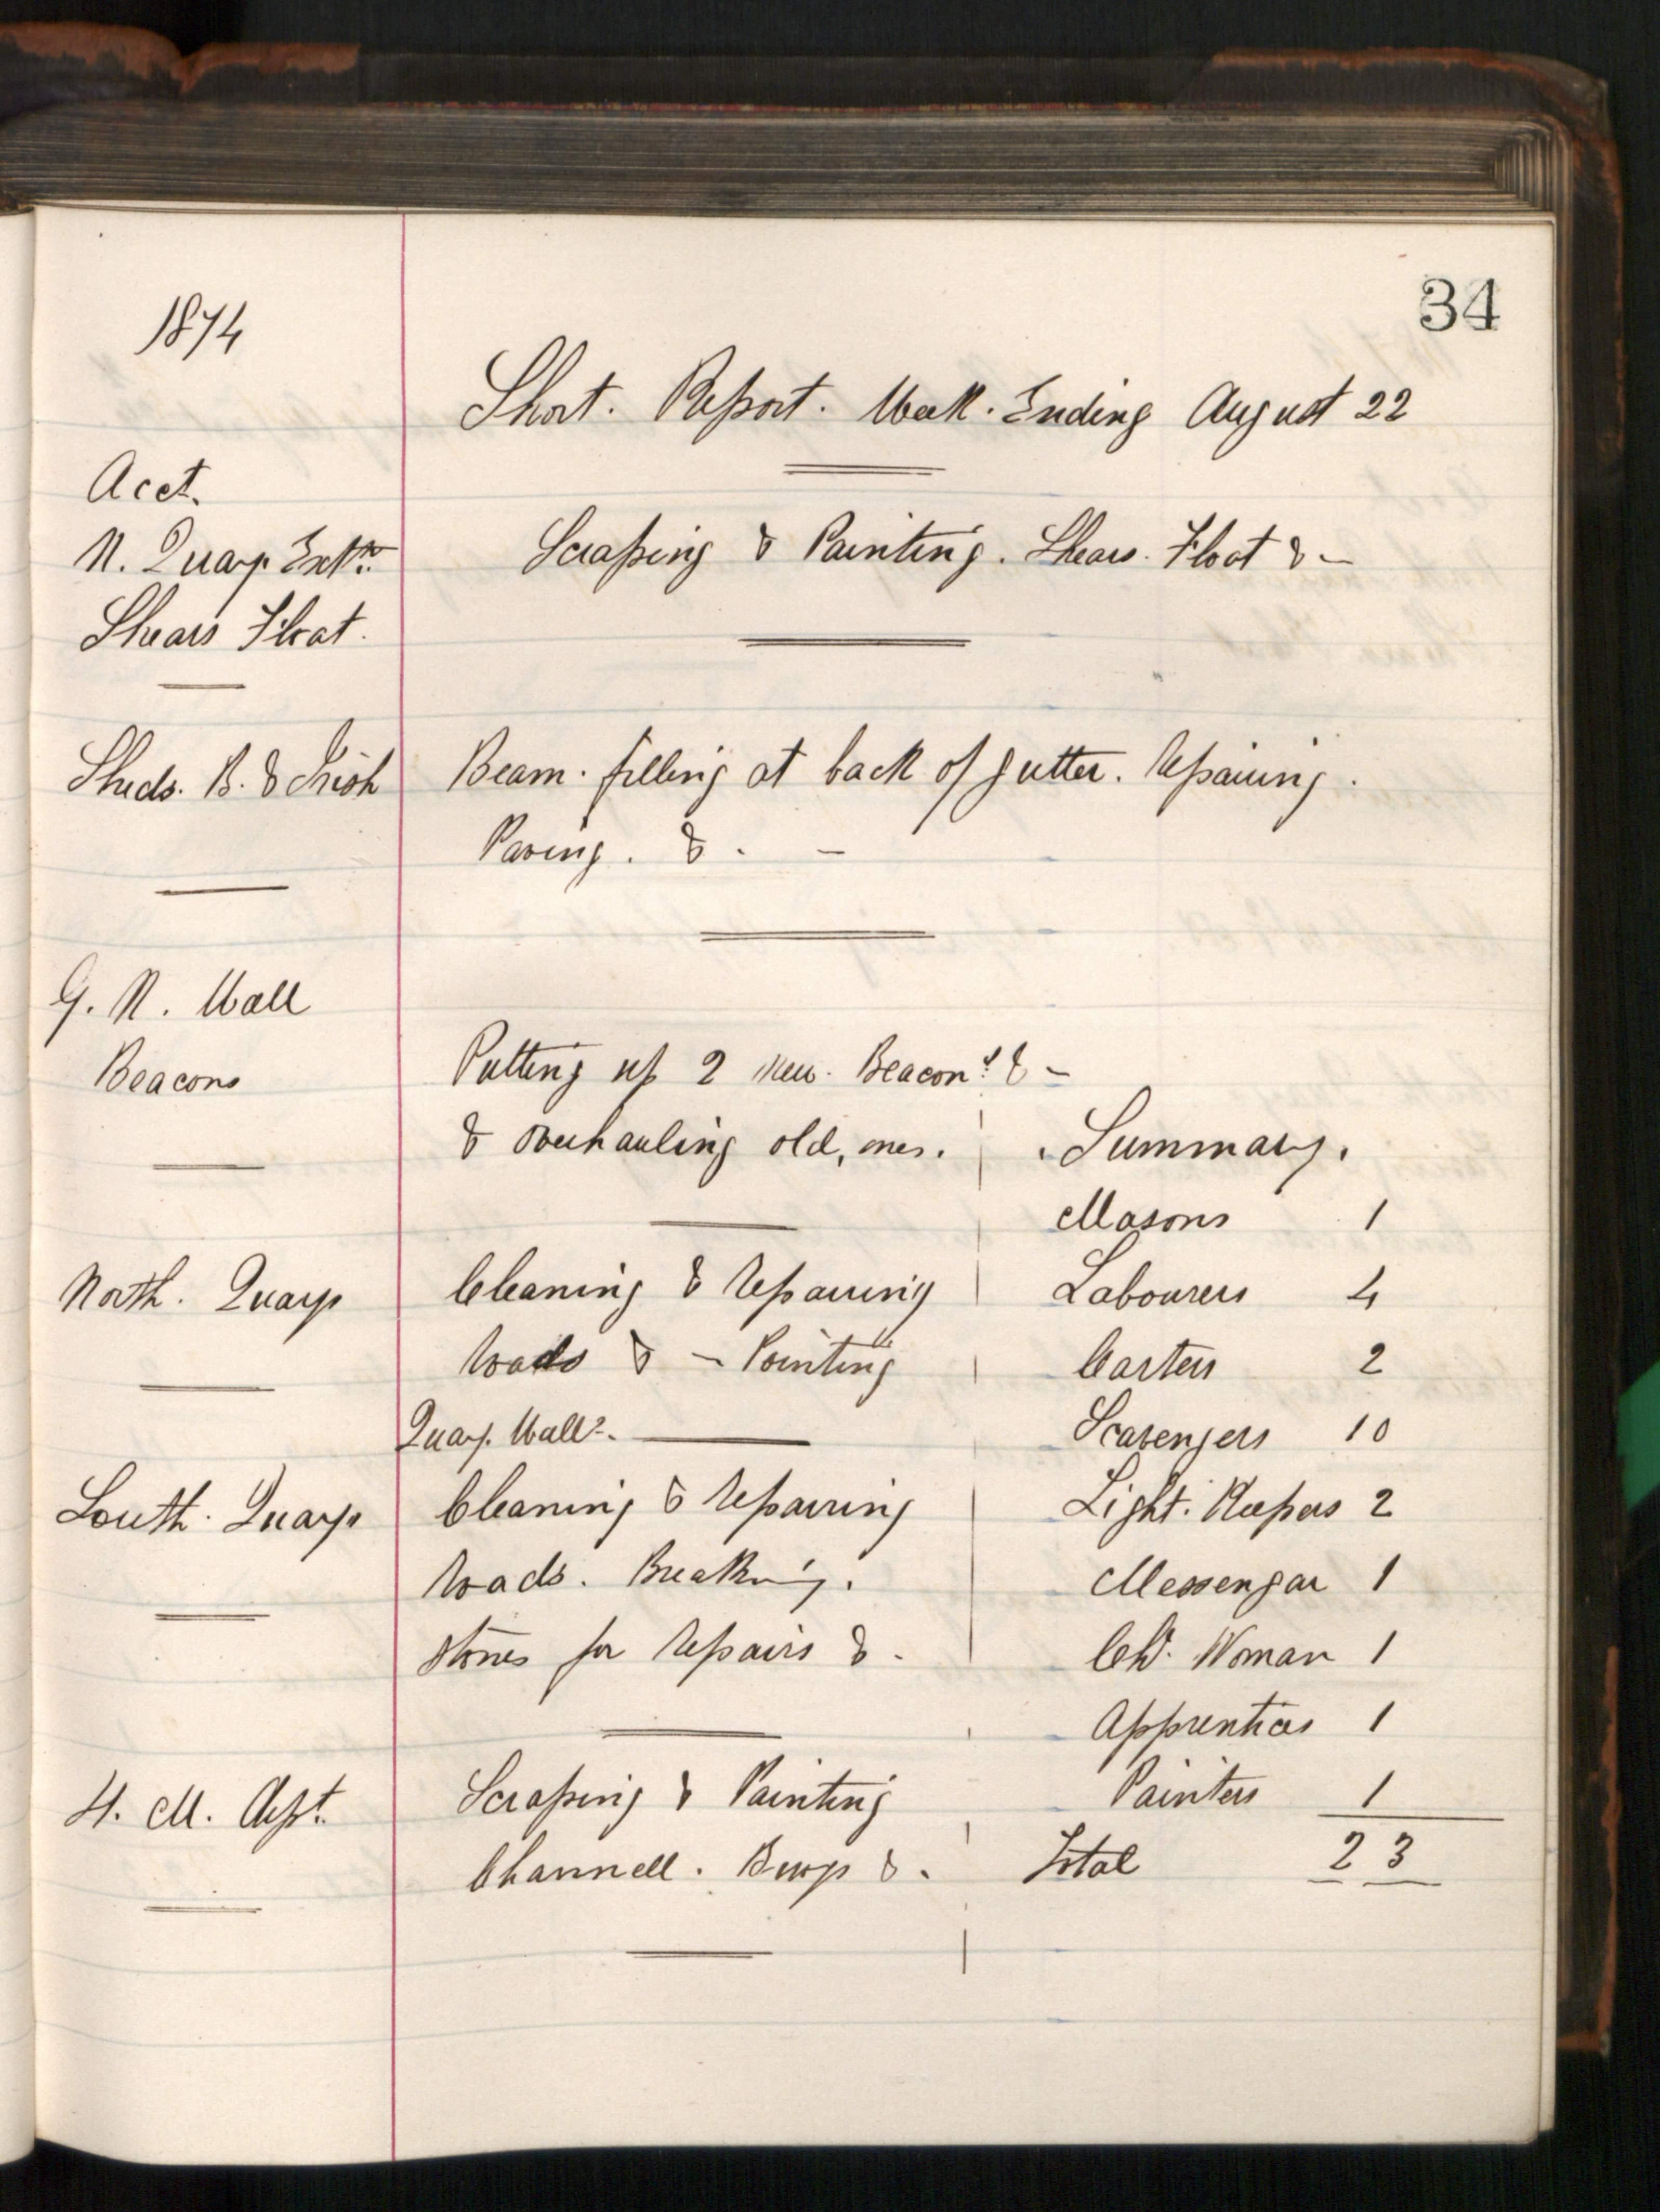 34
1874
Short. Report. Week. Ending August 22
Acct.
N. Quay Extn.
Shears Float.
Scraping & Painting. Shears. Float & -
Sheds. B. & Irish
Beam. filling at back of gutter. Repairing.
Paving. &. -
G. N. Wall
Beacons
Putting up 2 new. Beacons & -
& overhauling old, ones.
Summary.
Masons 1
Labourers 4
Carters 2
Scavengers 10
Light. Keepers 2
Messengar 1
Ch. Woman 1
Apprentices 1
Painters 1
Total 23
North. Quays
Cleaning & Repairing
Roads & - Pointing
Quay. Walls.
South. Quays
Cleaning & Repairing
Roads. Breaking.
stones for Repairs &.
H. M. Dept.
Scraping & Painting
Channell. Buoys &.